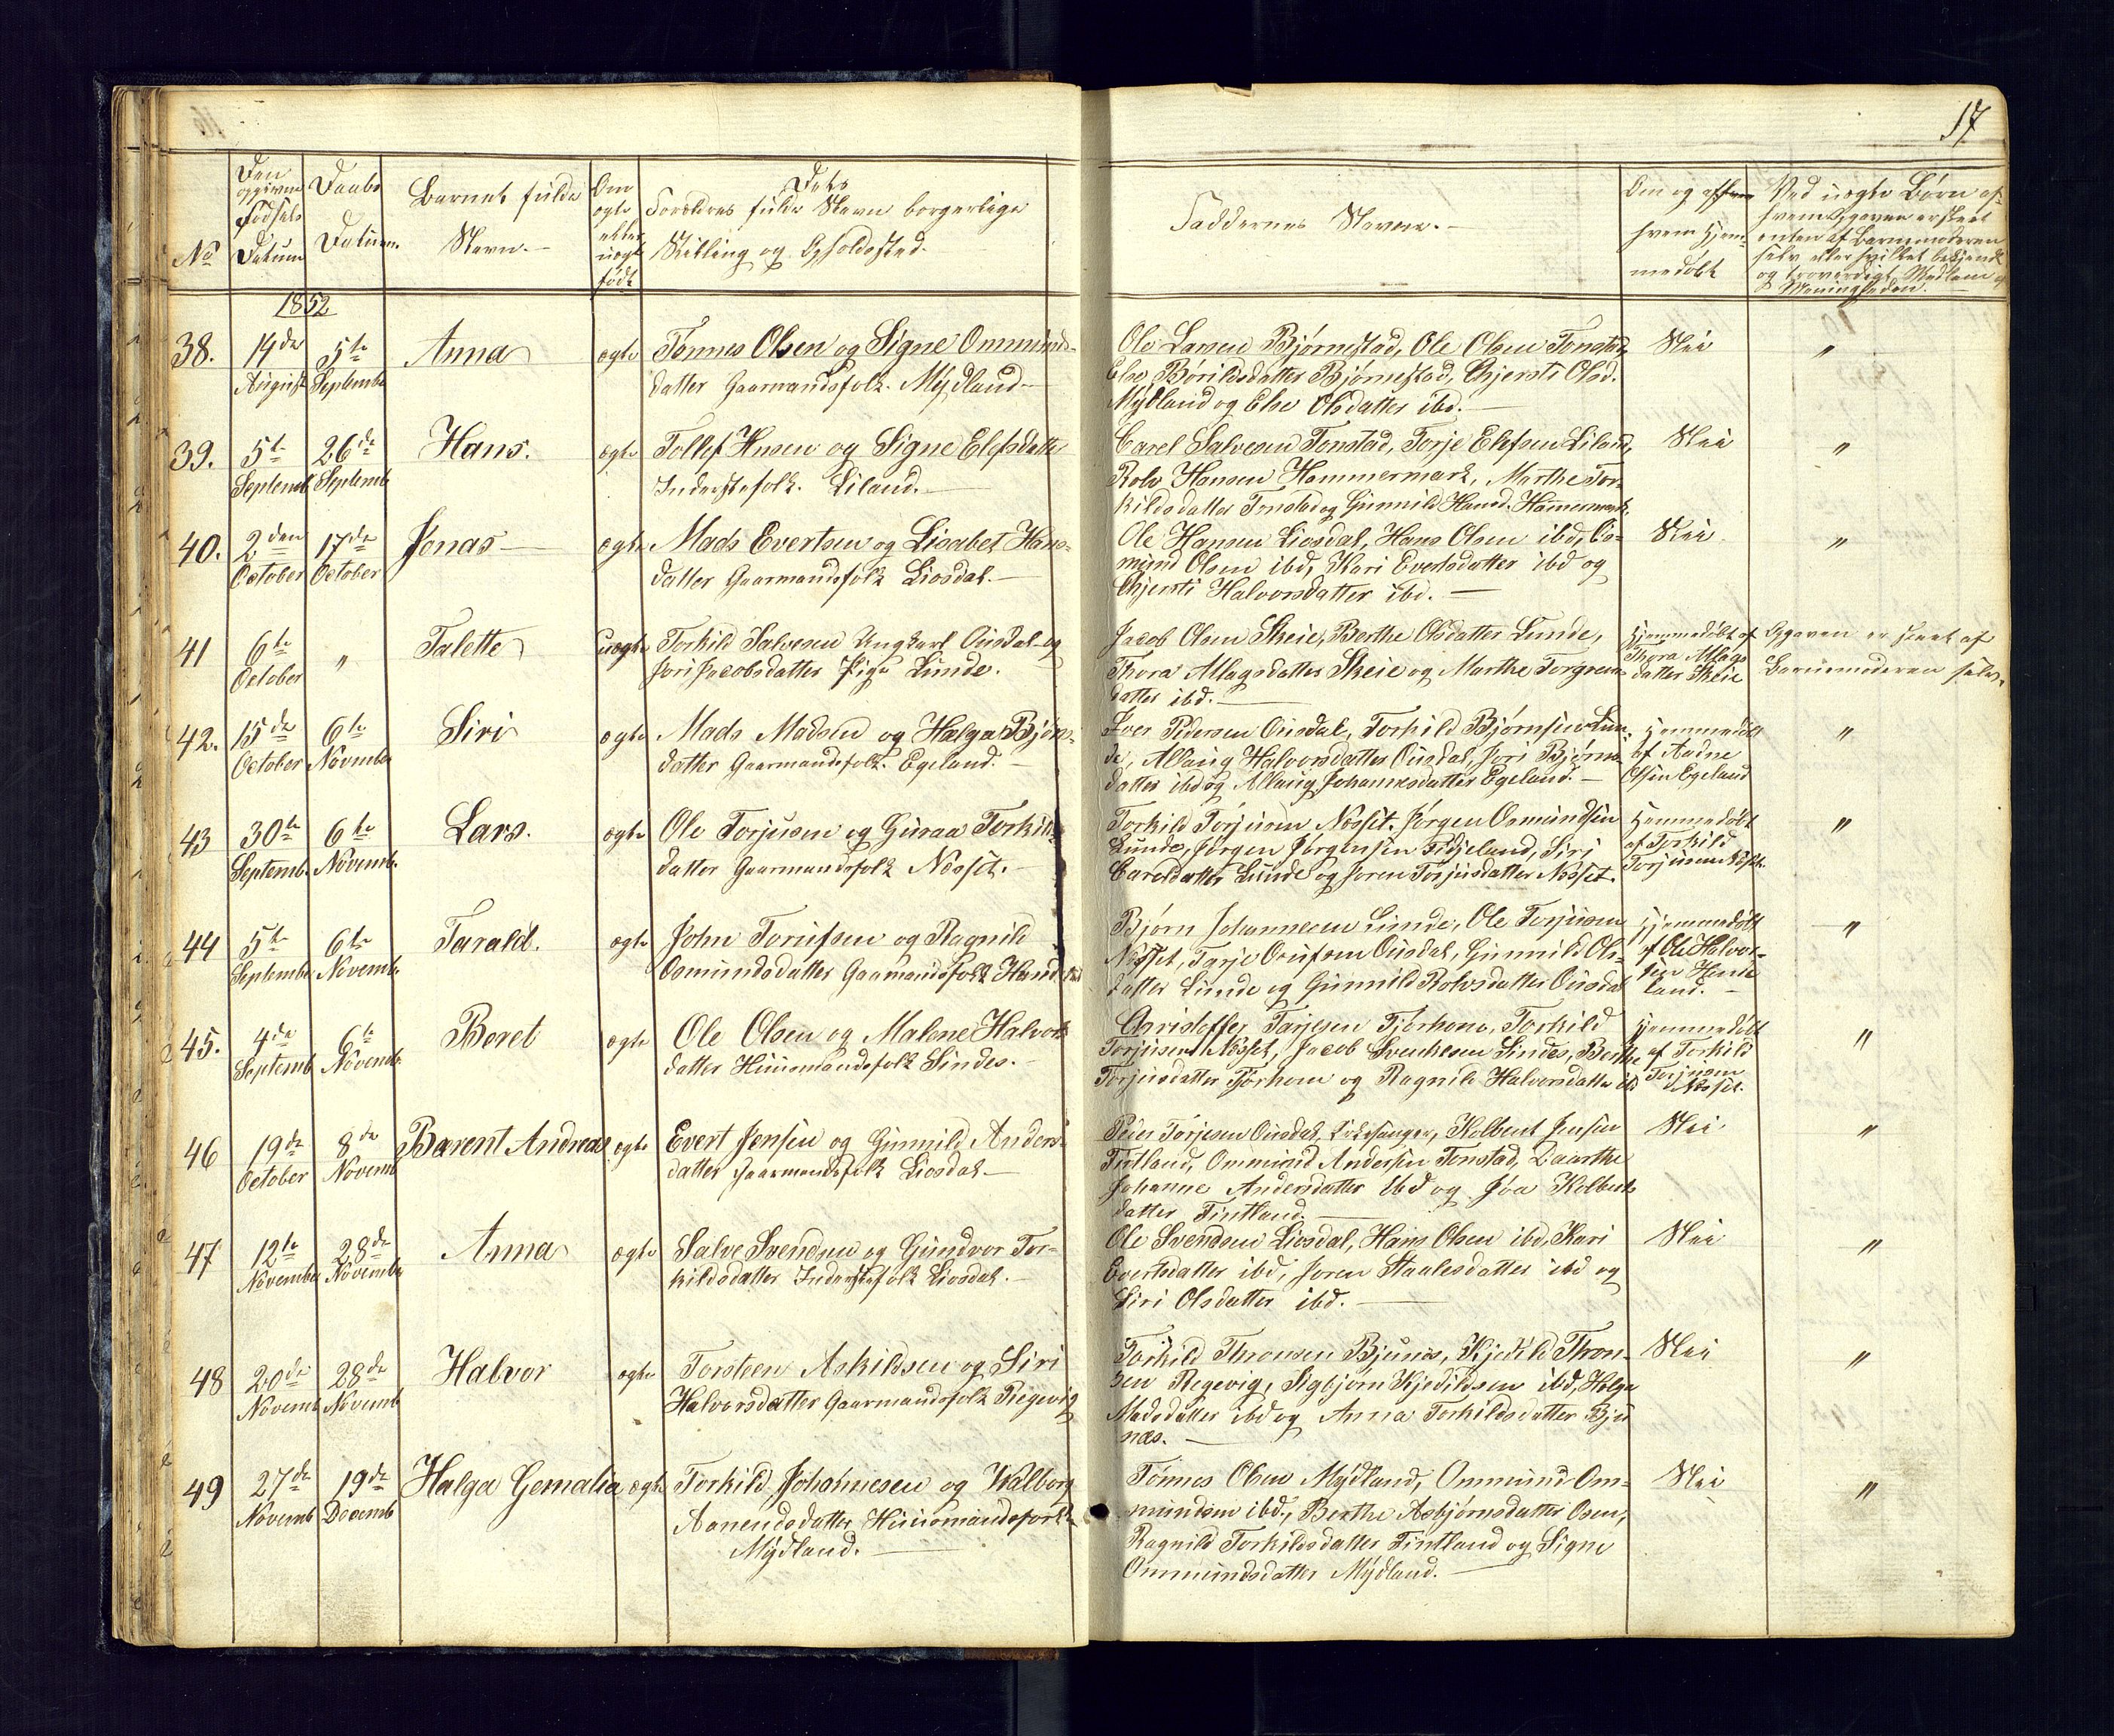 17
No
Den opgivne Fødsels Datum
Daabs Datum
Barnets fulde Navn.
Om ægte eller uægte født
Dets Forældres fulde Navn borgerlige Stilling og Opholdssted.
Faddernes Navne.
Om og af hvem hjemmedøbt
Ved uægte Børn af hvem Opgaven er skeet enten af Barnemoderen selv eller hvilket bekjendt og troværdigt Medlem af Menigheden.
1852
38. 14de August 5te Septembr Anna ægte Tønnes Olsen og Signe Ommunds-
datter Gaarmandsfolk Mydland
Ole Larsen Bjørnestad, Ole Olsen Tonstad,
Else Børildsdatter Bjørnestad, Chjersti Olsd.
Mydland og Else Olsdatter ibd.
Nei "
39. 5te Septemb 26de Septemb Hans. ægte Tollef Hansen og Signe Elefsdatter
Inderstefolk. Liland.
Carel Salvesen Tonstad, Torje Elefsen Liland,
Rolv Hansen Hammermark, Marthe Tor-
kildsdatter Tonstad og Gunnild Hansd. Hamermark.
Nei "
40. 2den October 17de October Jonas ægte Mads Evertsen og Lisabet Hans-
datter Gaarmandsfolk Liosdal.
Ole Hansen Liosdal, Hans Olsen ibd, Os-
mund Olsen ibd, Kari Evertsdatter ibd og
Chjersti Halvorsdatter ibd.
Nei "
41 6te October " Talette uægte Torkild Salvesen Ungkarl Ousdal og
Jori Jacobsdatter Pige Lunde.
Jacob Olsen Skeie, Berthe Olsdatter Lunde,
Thora Allagsdatter Skeie og Marthe Torgrims-
datter ibd.
Hjemmedøbt af
Thora Allags
datter Skeie
Opgaven er skeet af
Barnemoderen selv.
42. 15de October 6te Novembr Siri ægte Mads Madsen og Hælga Bjørns-
datter Gaarmandsfolk. Egeland.
Iver Pedersen Ousdal, Torkild Bjørnsen Lun-
de, Allaug Halvorsdatter Ousdal, Jori Bjørns-
datter ibd og Allaug Johannesdatter Egeland.
Hjemmedøbt
af Aadne
Olsen Egeland
"
43 30te Septemb. 6te Novemb. Lars. ægte Ole Torjusen og Guraa Torkilds-
datter Gaarmandsfolk Nesset.
Torkild Torjusen Nesset. Jørgen Osmundsen
Lunde, Jørgen Jørgensen Fidjeland, Siri
Carelsdatter Lunde og Joren Torjusdatter Nesset.
Hjemmedøbt
af Torkild
Torjusen Nesset.
"
44 5te Septembr 6te Novemb. Tarald. ægte John Torufsen og Ragnild
Osmundsdatter Gaarmandsfolk
Bjørn Johannesen Lunde, Ole Torjusen
Nesset, Tarje Orufsen Ousdal, Gunnild Ols-
datter Lunde og Gunnild Rolvsdatter Ousdal
Hjemmedøbt
af Ole Halvor-
sen
land.
"
45. 4de Septemb 6te Novemb. Beret ægte Ole Olsen og Malene Halvors
datter Huusmandsfolk Sindes.
Christoffer Tarjesen Tjørhom, Torkild
Torjusen Nesset, Jacob Svenkesen Sindes, Berthe
Torjusdatter Tjørhom og Ragnild Halvorsdatter ibd
Hjemmedøbt
af Torkild
Torjusen
Nesset.
"
46 19de October 8de Novemb Bærent Andreas ægte Evert Jensen og Gunnild Anders-
datter Gaarmandsfolk Liosdal
Peter Torjesen Ousdal, Kirkesanger, Kolbent Jensen
Fintland, Ommund Andersen Tonstad, Daarthe
Johanne Andersdatter ibd og Joa Kolbents
datter Fintland.
Nei "
47 12te Novembr 28de Novembr Anna ægte Salve Svendsen og Gundvor Tor-
kildsdatter Inderstefolk Liosdal.
Ole Svendsen Liosdal, Hans Olsen ibd, Kari
Evertsdatter ibd, Joren Staalesdatter ibd og
Siri Olsdatter ibd.
Nei "
48 20de Novemb 28de Novemb Halvor ægte Torsteen Askildsen og Siri
Halvorsdatter Gaarmandsfolk Regevig
Torkild Thronsen Bjunes, Kjedild Thron-
sen Regevig, Sigbjørn Kjedildsen ibd, Helga
Madsdatter ibd og Anna Torkildsdatter Bju
næs.
Nei "
49 27de Novemb 19de Decemb Halga Gemalia ægte Torkild Johannesen og Walborg
Aanendsdatter Huusmandsfolk
Mydland.
Tønnes Olsen Mydland, Ommund Om-
mundsen ibd., Berthe Asbjørnsdatter Osen,
Ragnild Torkildsdatter Fintland og Signe
Ommundsdatter Mydland.
Nei "